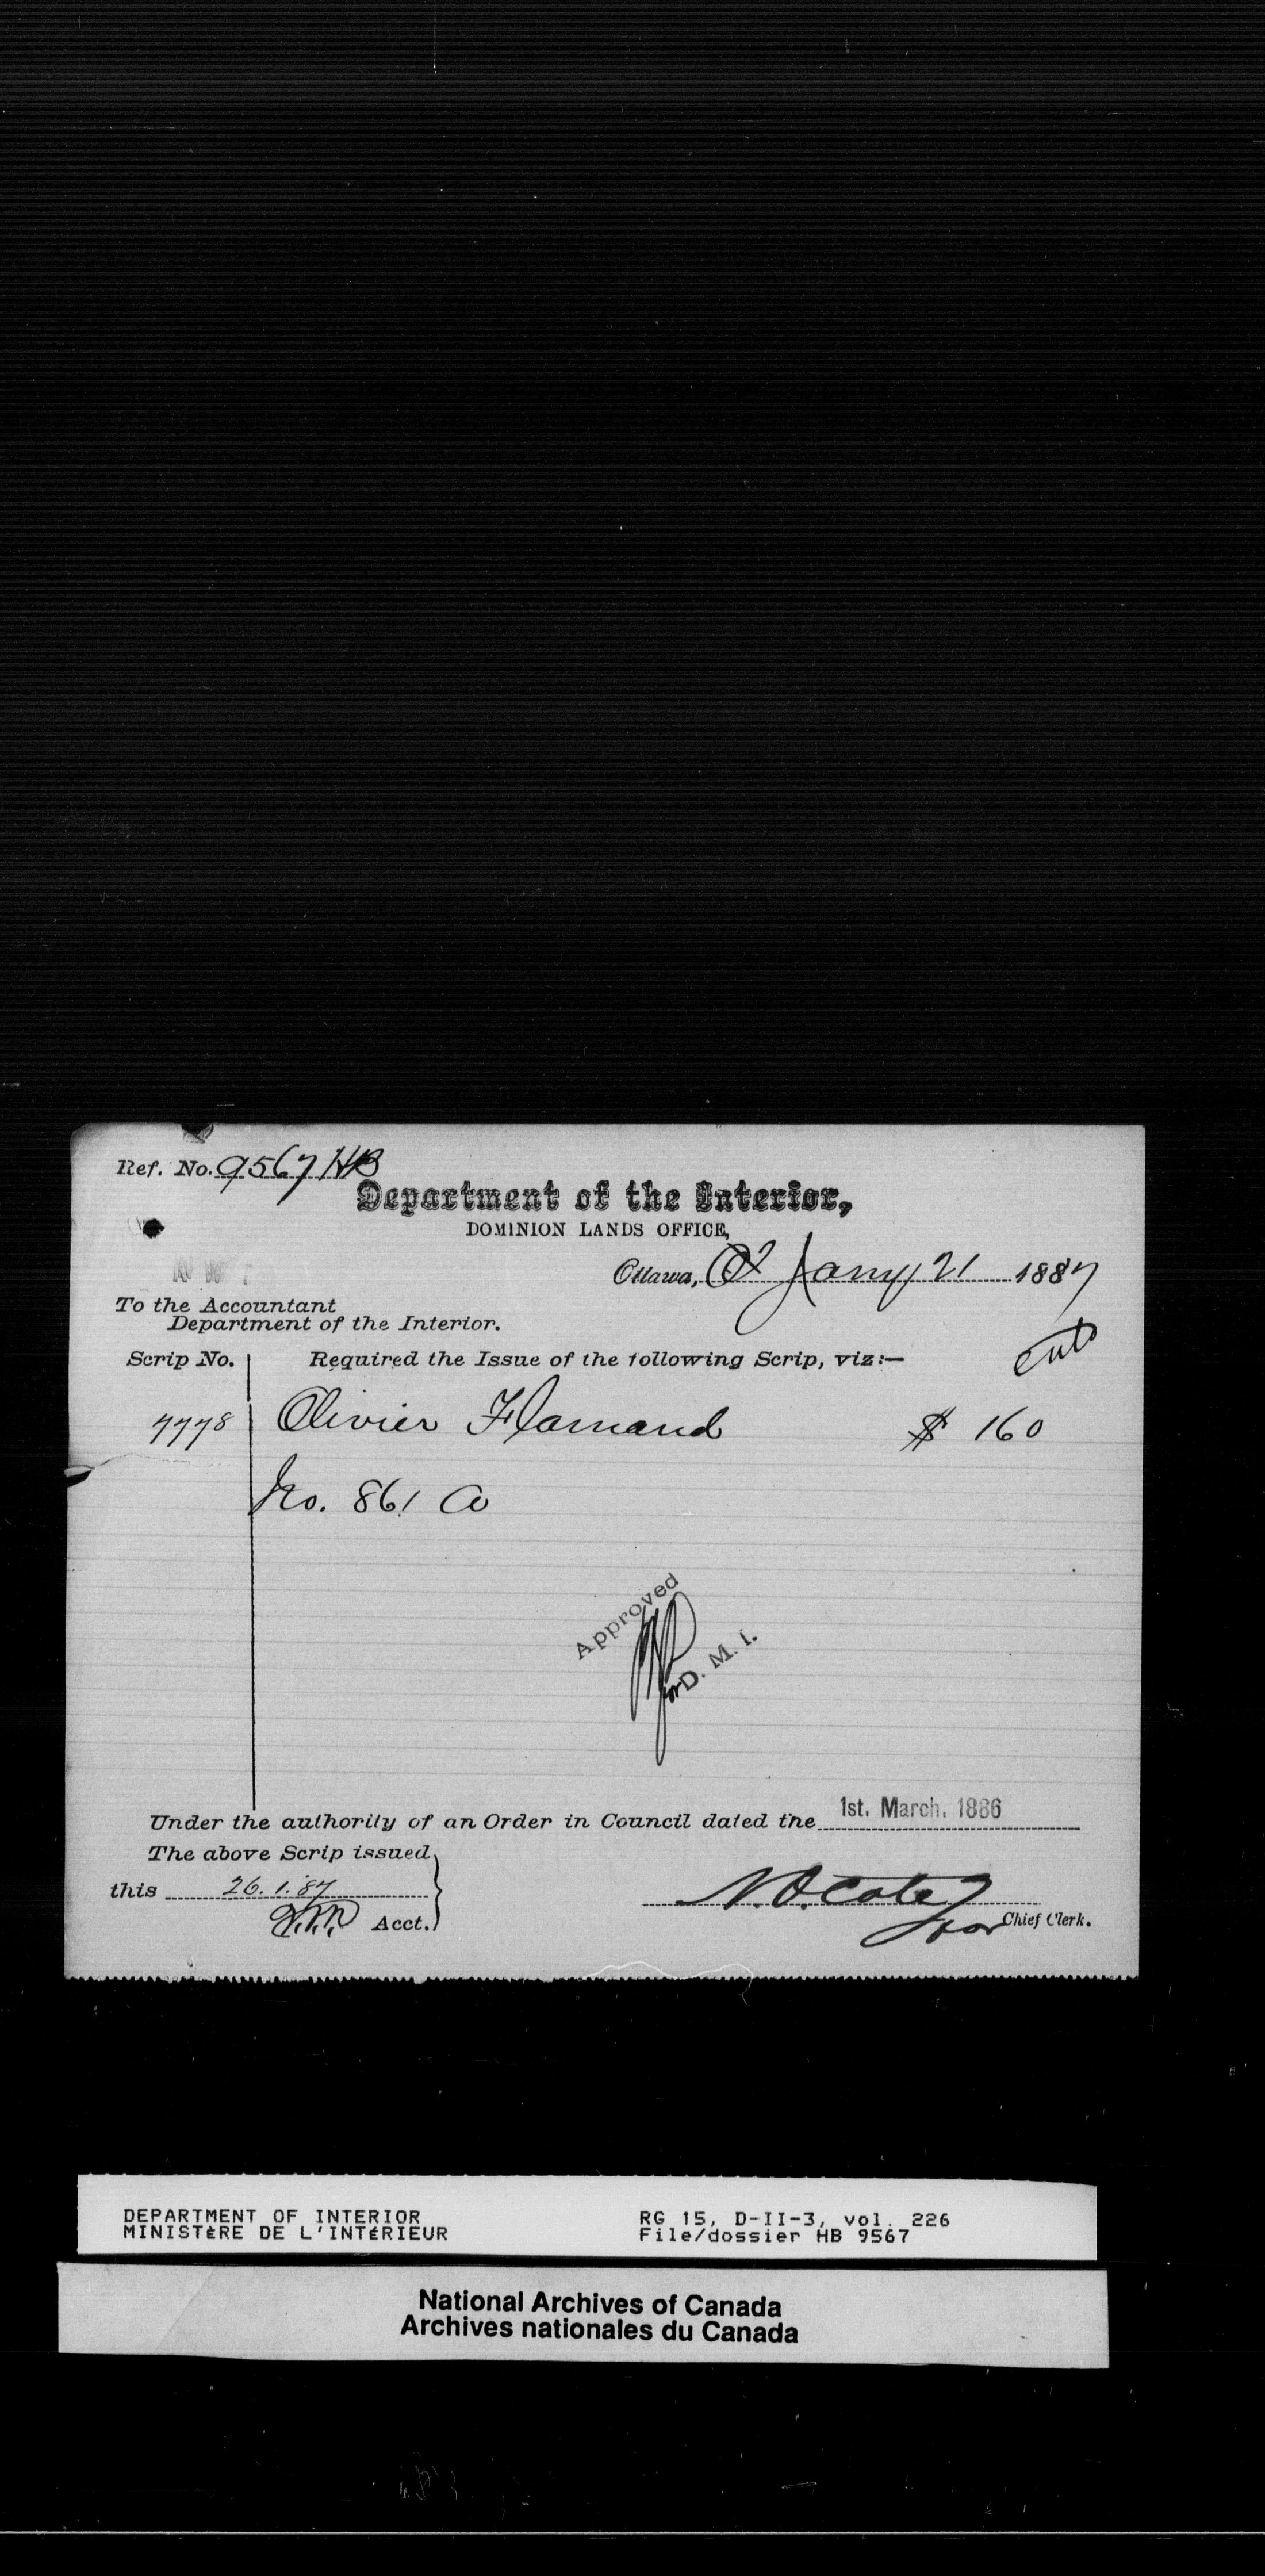 Ref. No. 9567 HB
Department of the Interior,
DOMINION LANDS OFFICE,
Ottawa, Jany 21 1887
To the Accountant
Department of the Interior.
Scrip No. Required the Issue of the following Scrip, viz:—
7778 Olivier Flamand $ 160
No. 861 A
Approved
for D. M. I.
Under the authority of an Order in Council dated the 1st. March. 1886
The above Scrip issued
this 26.1.87
Acct.
N.O. Cote
for Chief Clerk.
DEPARTMENT OF INTERIOR RG 15, D-II-3, vol. 226
MINISTÈRE DE L'INTÉRIEUR File/dossier HB 9567
National Archives of Canada
Archives nationales du Canada